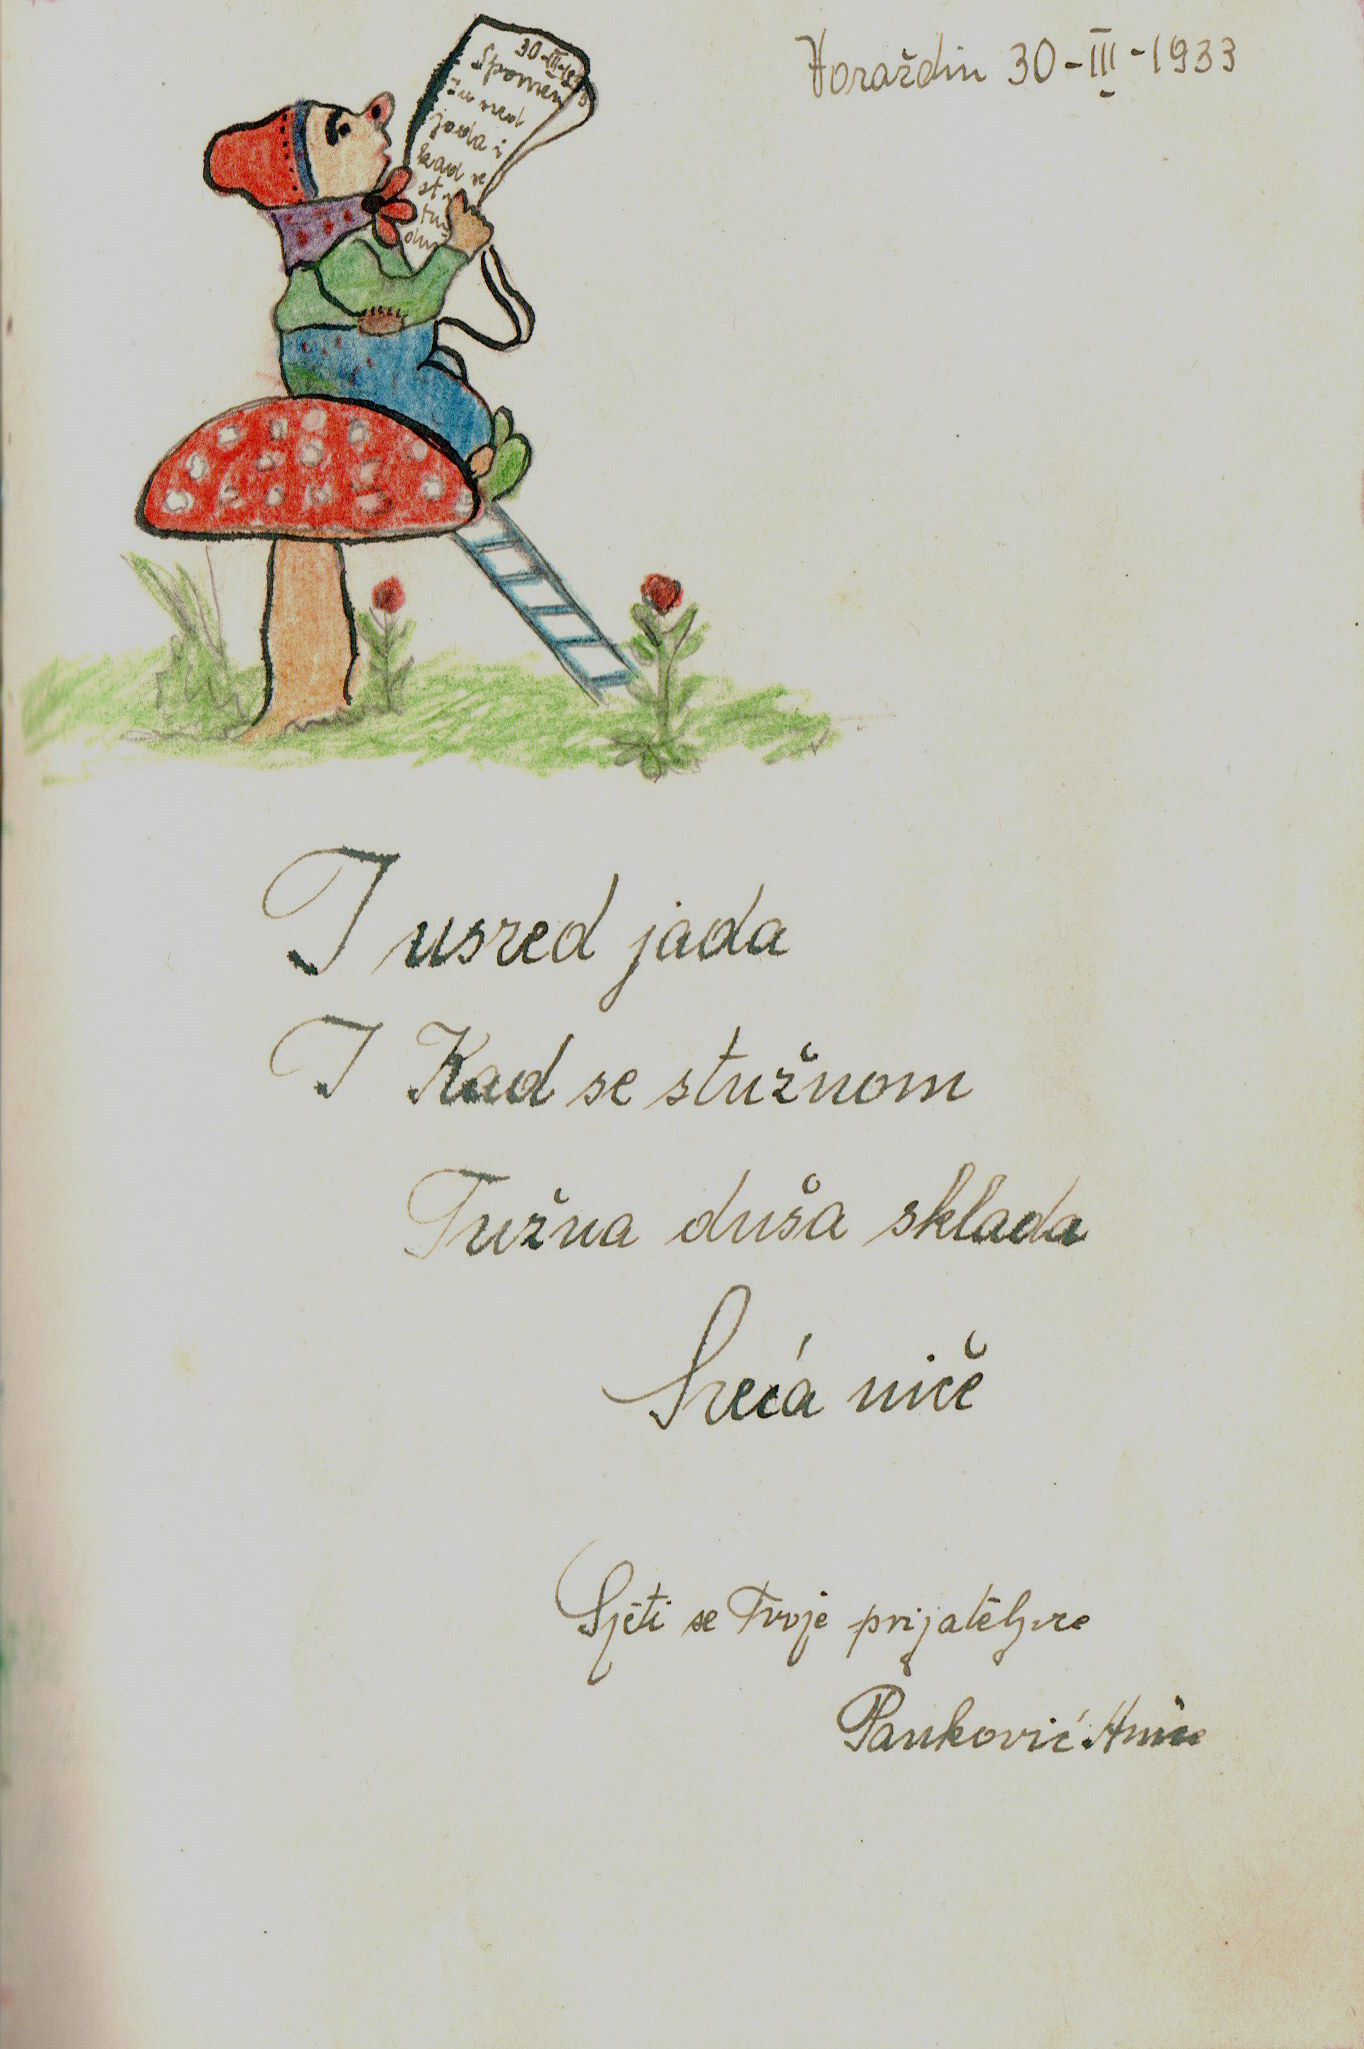 Voraždin 30-III-1933
30-III-19
Spomen
I u sred
jada i
kad se
st
tu
du
I usred jada
I Kad se stužnom
Tužna duša sklada
Sreća niče
Sjeti se Tvoje prijateljice
Panković